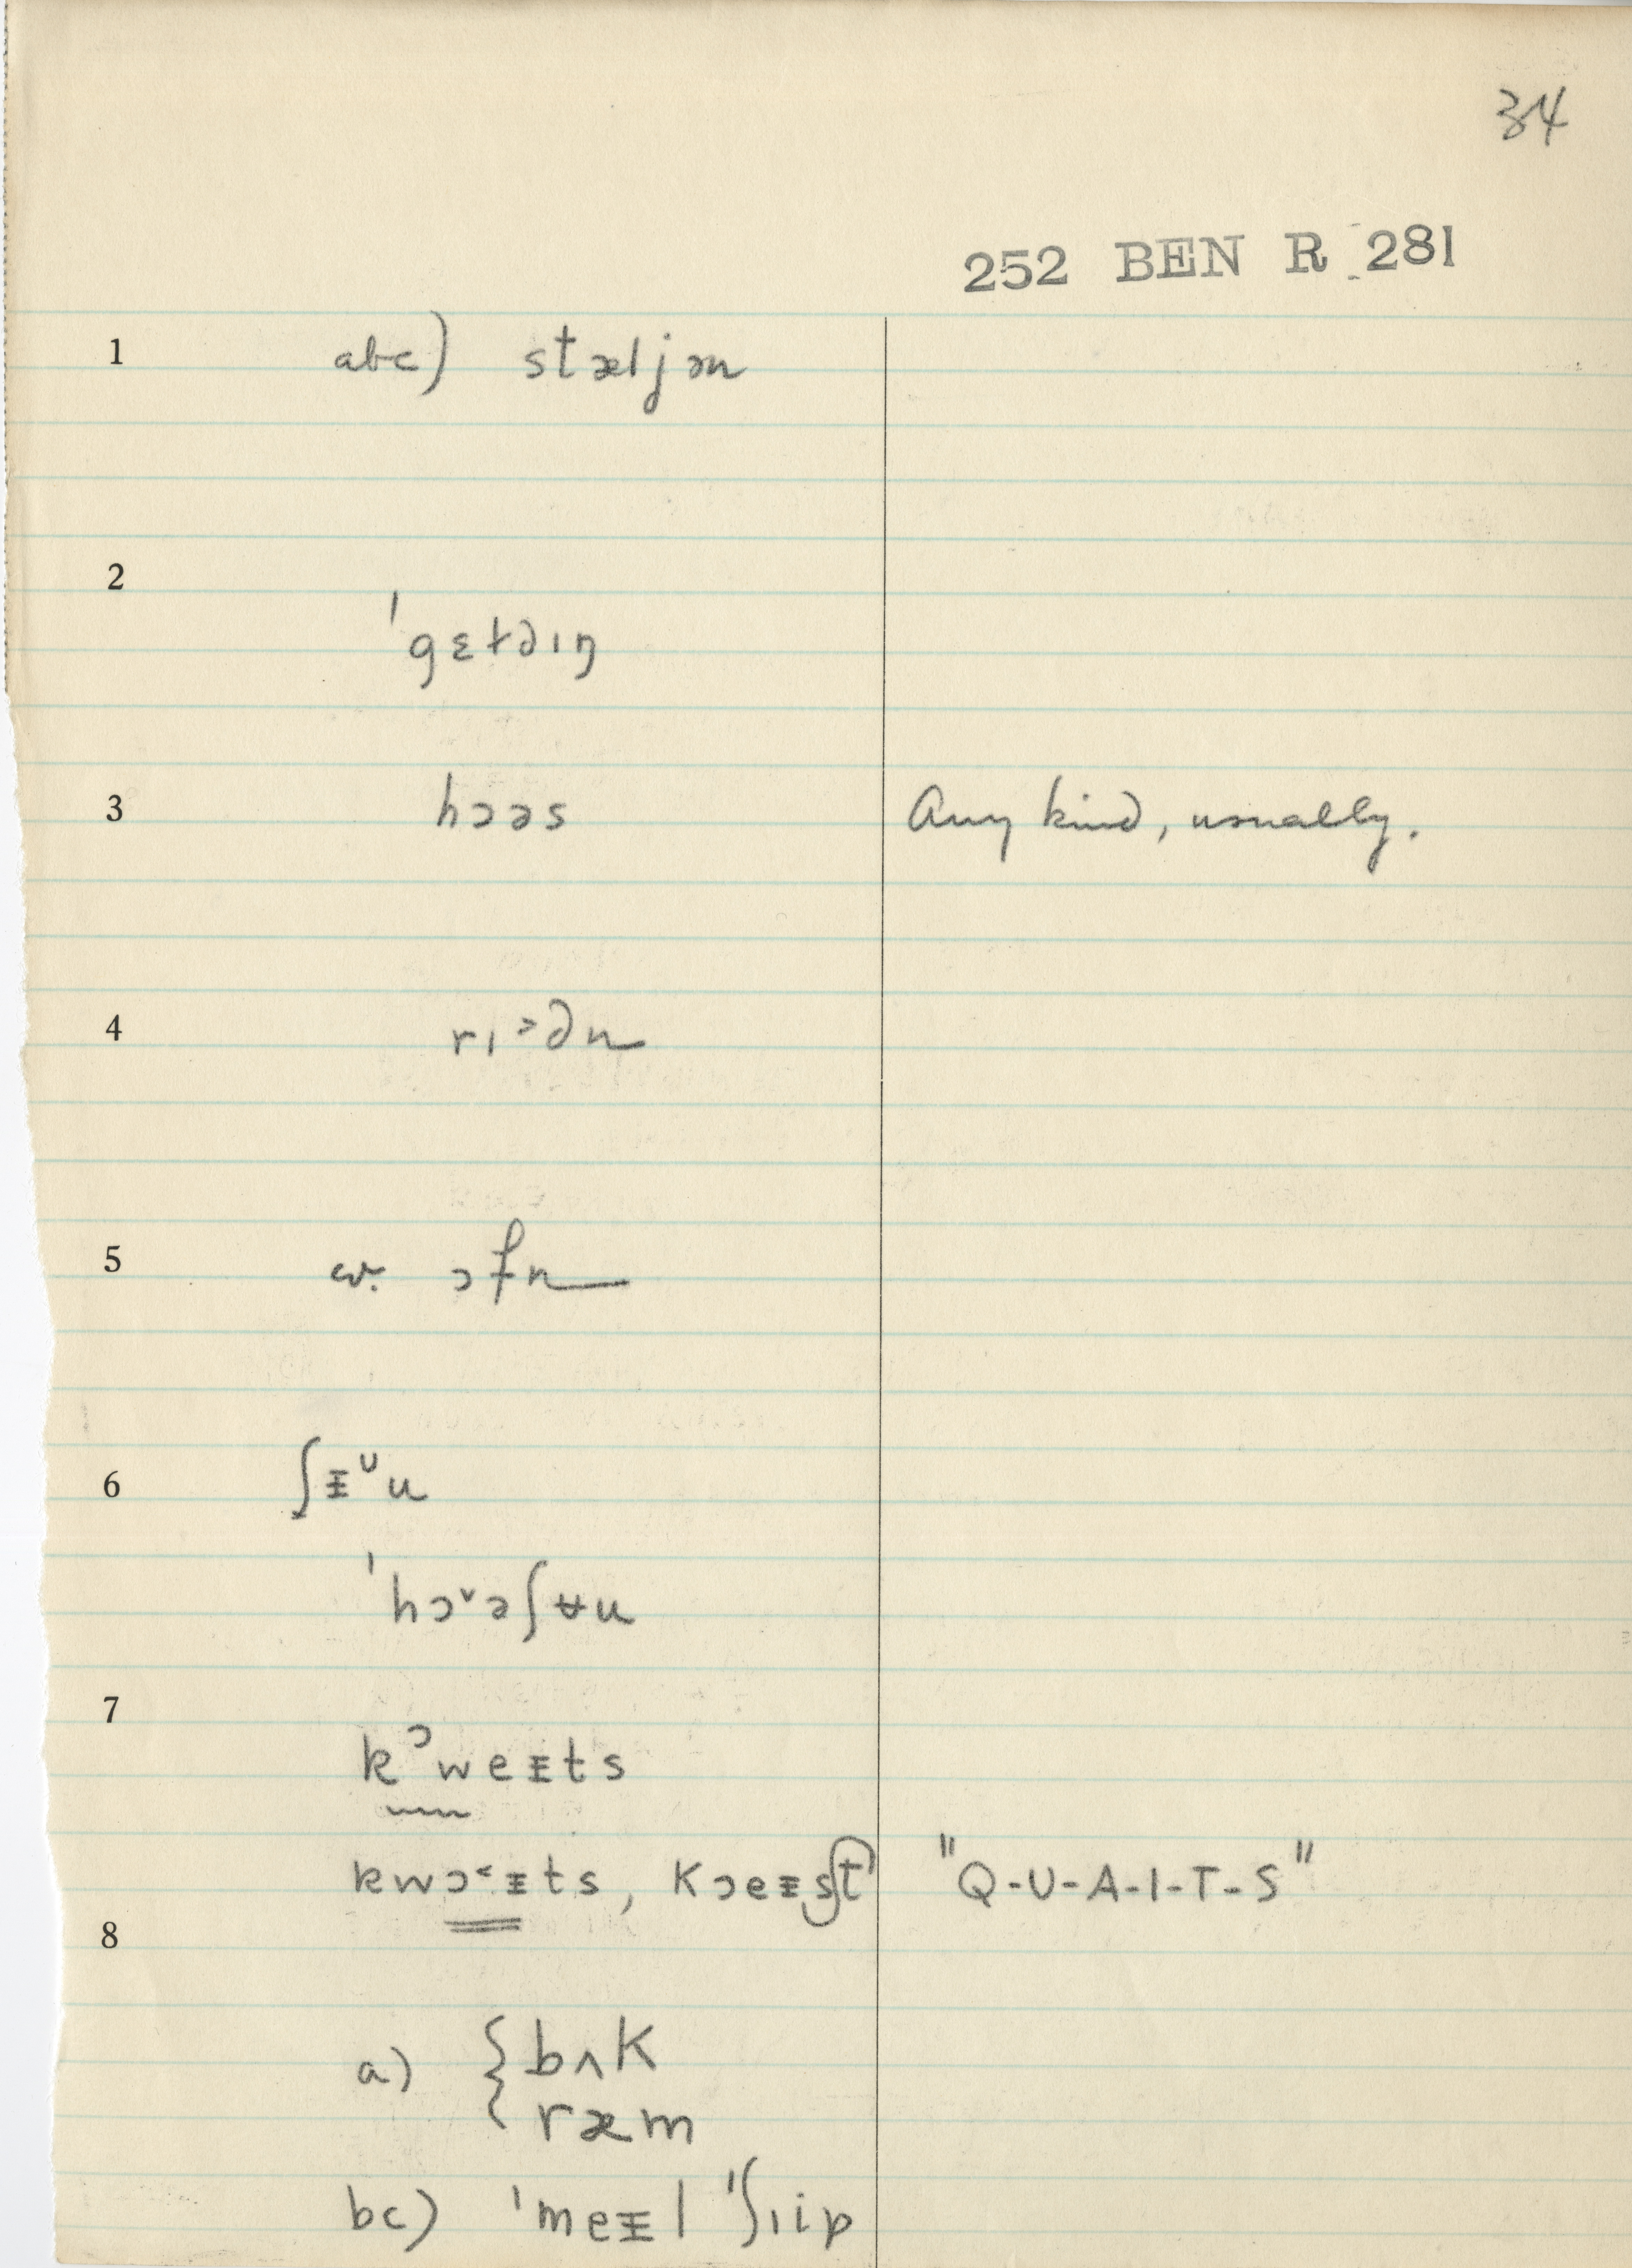 34
252 BEN R 281
1 abc) stæljən
2
ˈgɛtəɪŋ
3 hɔəs Any kind, usually.
4 rɪ˃ən
5 cv. ɔfn
6 ʃᵻᶷu
ˈhɔ˅əʃʉu
7
kᵓweᵻts
kwɔ˂ᵻts, kɔeᵻst "Q-U-A-I-T-S"
8
a) { bʌk
ræm
bc) ˈmeᵻl ˈʃɪip